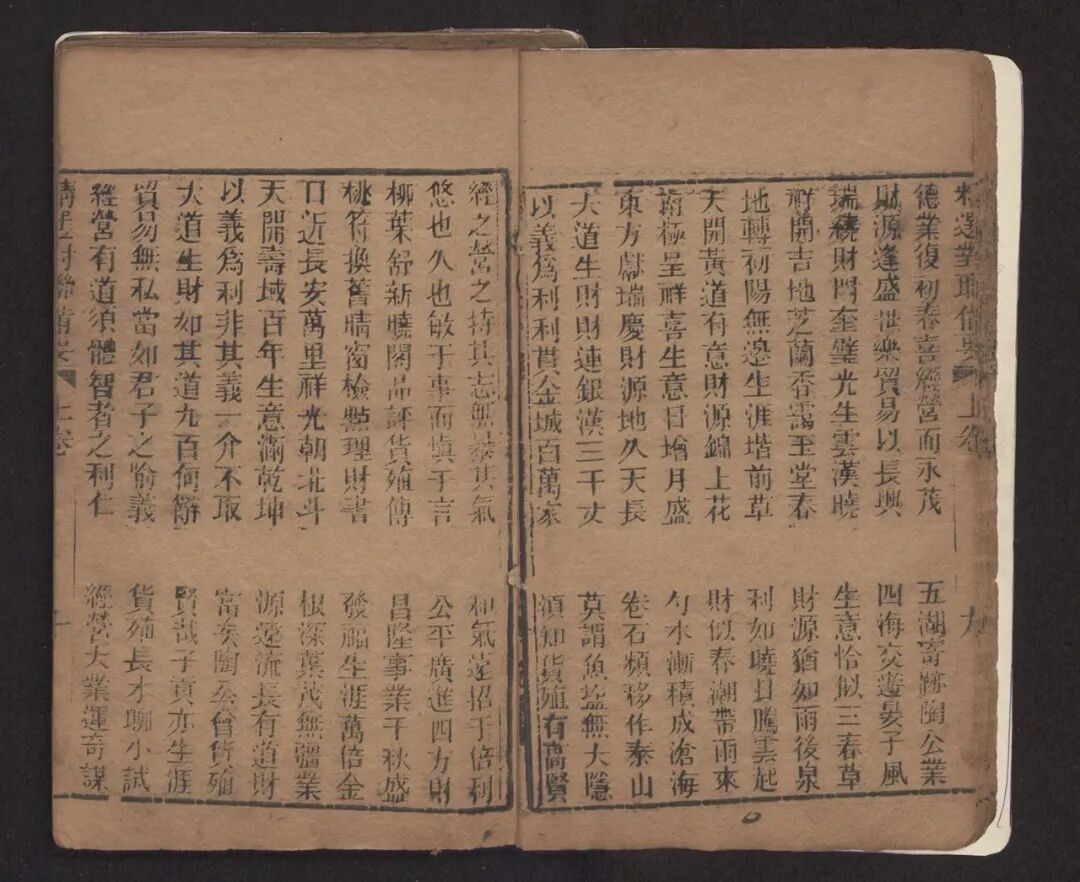 聯備要 上卷 九
德業復初春喜經營而永茂 五湖寄跡陶公業
財源逢盛世樂貿易以長興 四海交遊晏子風
瑞繞財門奎壁光生雲漢曉 生意恰似三春草
祥開吉地芝蘭香靄玉堂春 財源猶如雨後泉
地轉初陽無邊生涯堦前草 利如曉日騰雲起
天開黃道有意財源錦上花 財似春潮帶雨來
南極呈祥喜生意日增月盛 勺水漸積成滄海
東方獻瑞慶財源地久天長 卷石頻移作泰山
大道生財財連銀漢三千丈 莫謂魚塩無大隱
以義爲利利貫金城百萬家 須知貨殖有高賢
經之營之持其志無暴其氣 和氣遠招千倍利
悠也久也敏于事而慎于言 公平廣進四方財
柳葉舒新曉閣品評貨殖傳 昌隆事業千秋盛
桃符換舊晴窗檢點理財書 發福生涯萬倍金
日近長安萬里祥光朝北斗 根深葉茂無彊業
天開壽域百年生意滿乾坤 源遠流長有道財
以義爲利非其義一介不取 富矣陶公曾貨殖
大道生財如其道九百何辭 賢哉子貢亦生涯
貿易無私當如君子之喻義 貨殖長才聊小試
經營有道須體智者之利仁 經營大業運奇謀
對聯備要 上卷 十